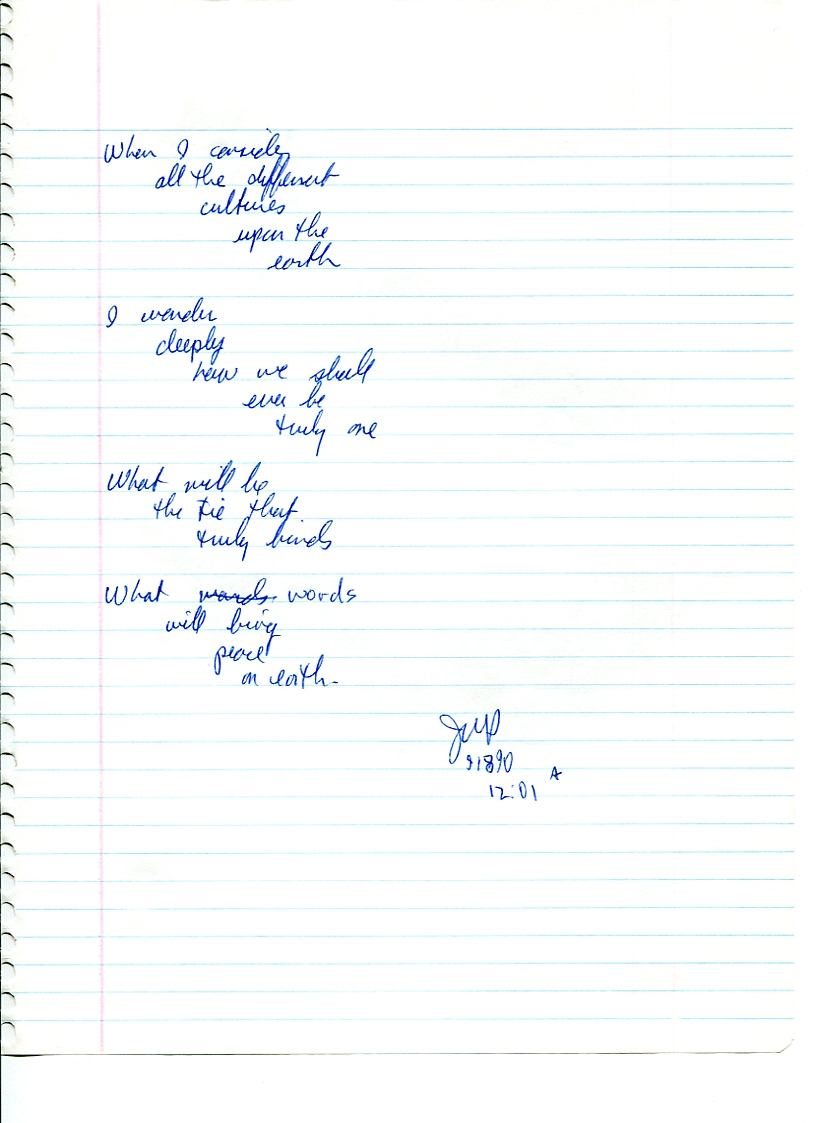 When I consider
all the different
cultures
upon the
earth
I wonder
deeply
how we shall
ever be
truly one
What will be
the tie that
truly binds
What words words
will bring
peace
on earth.
91890
12:01 A